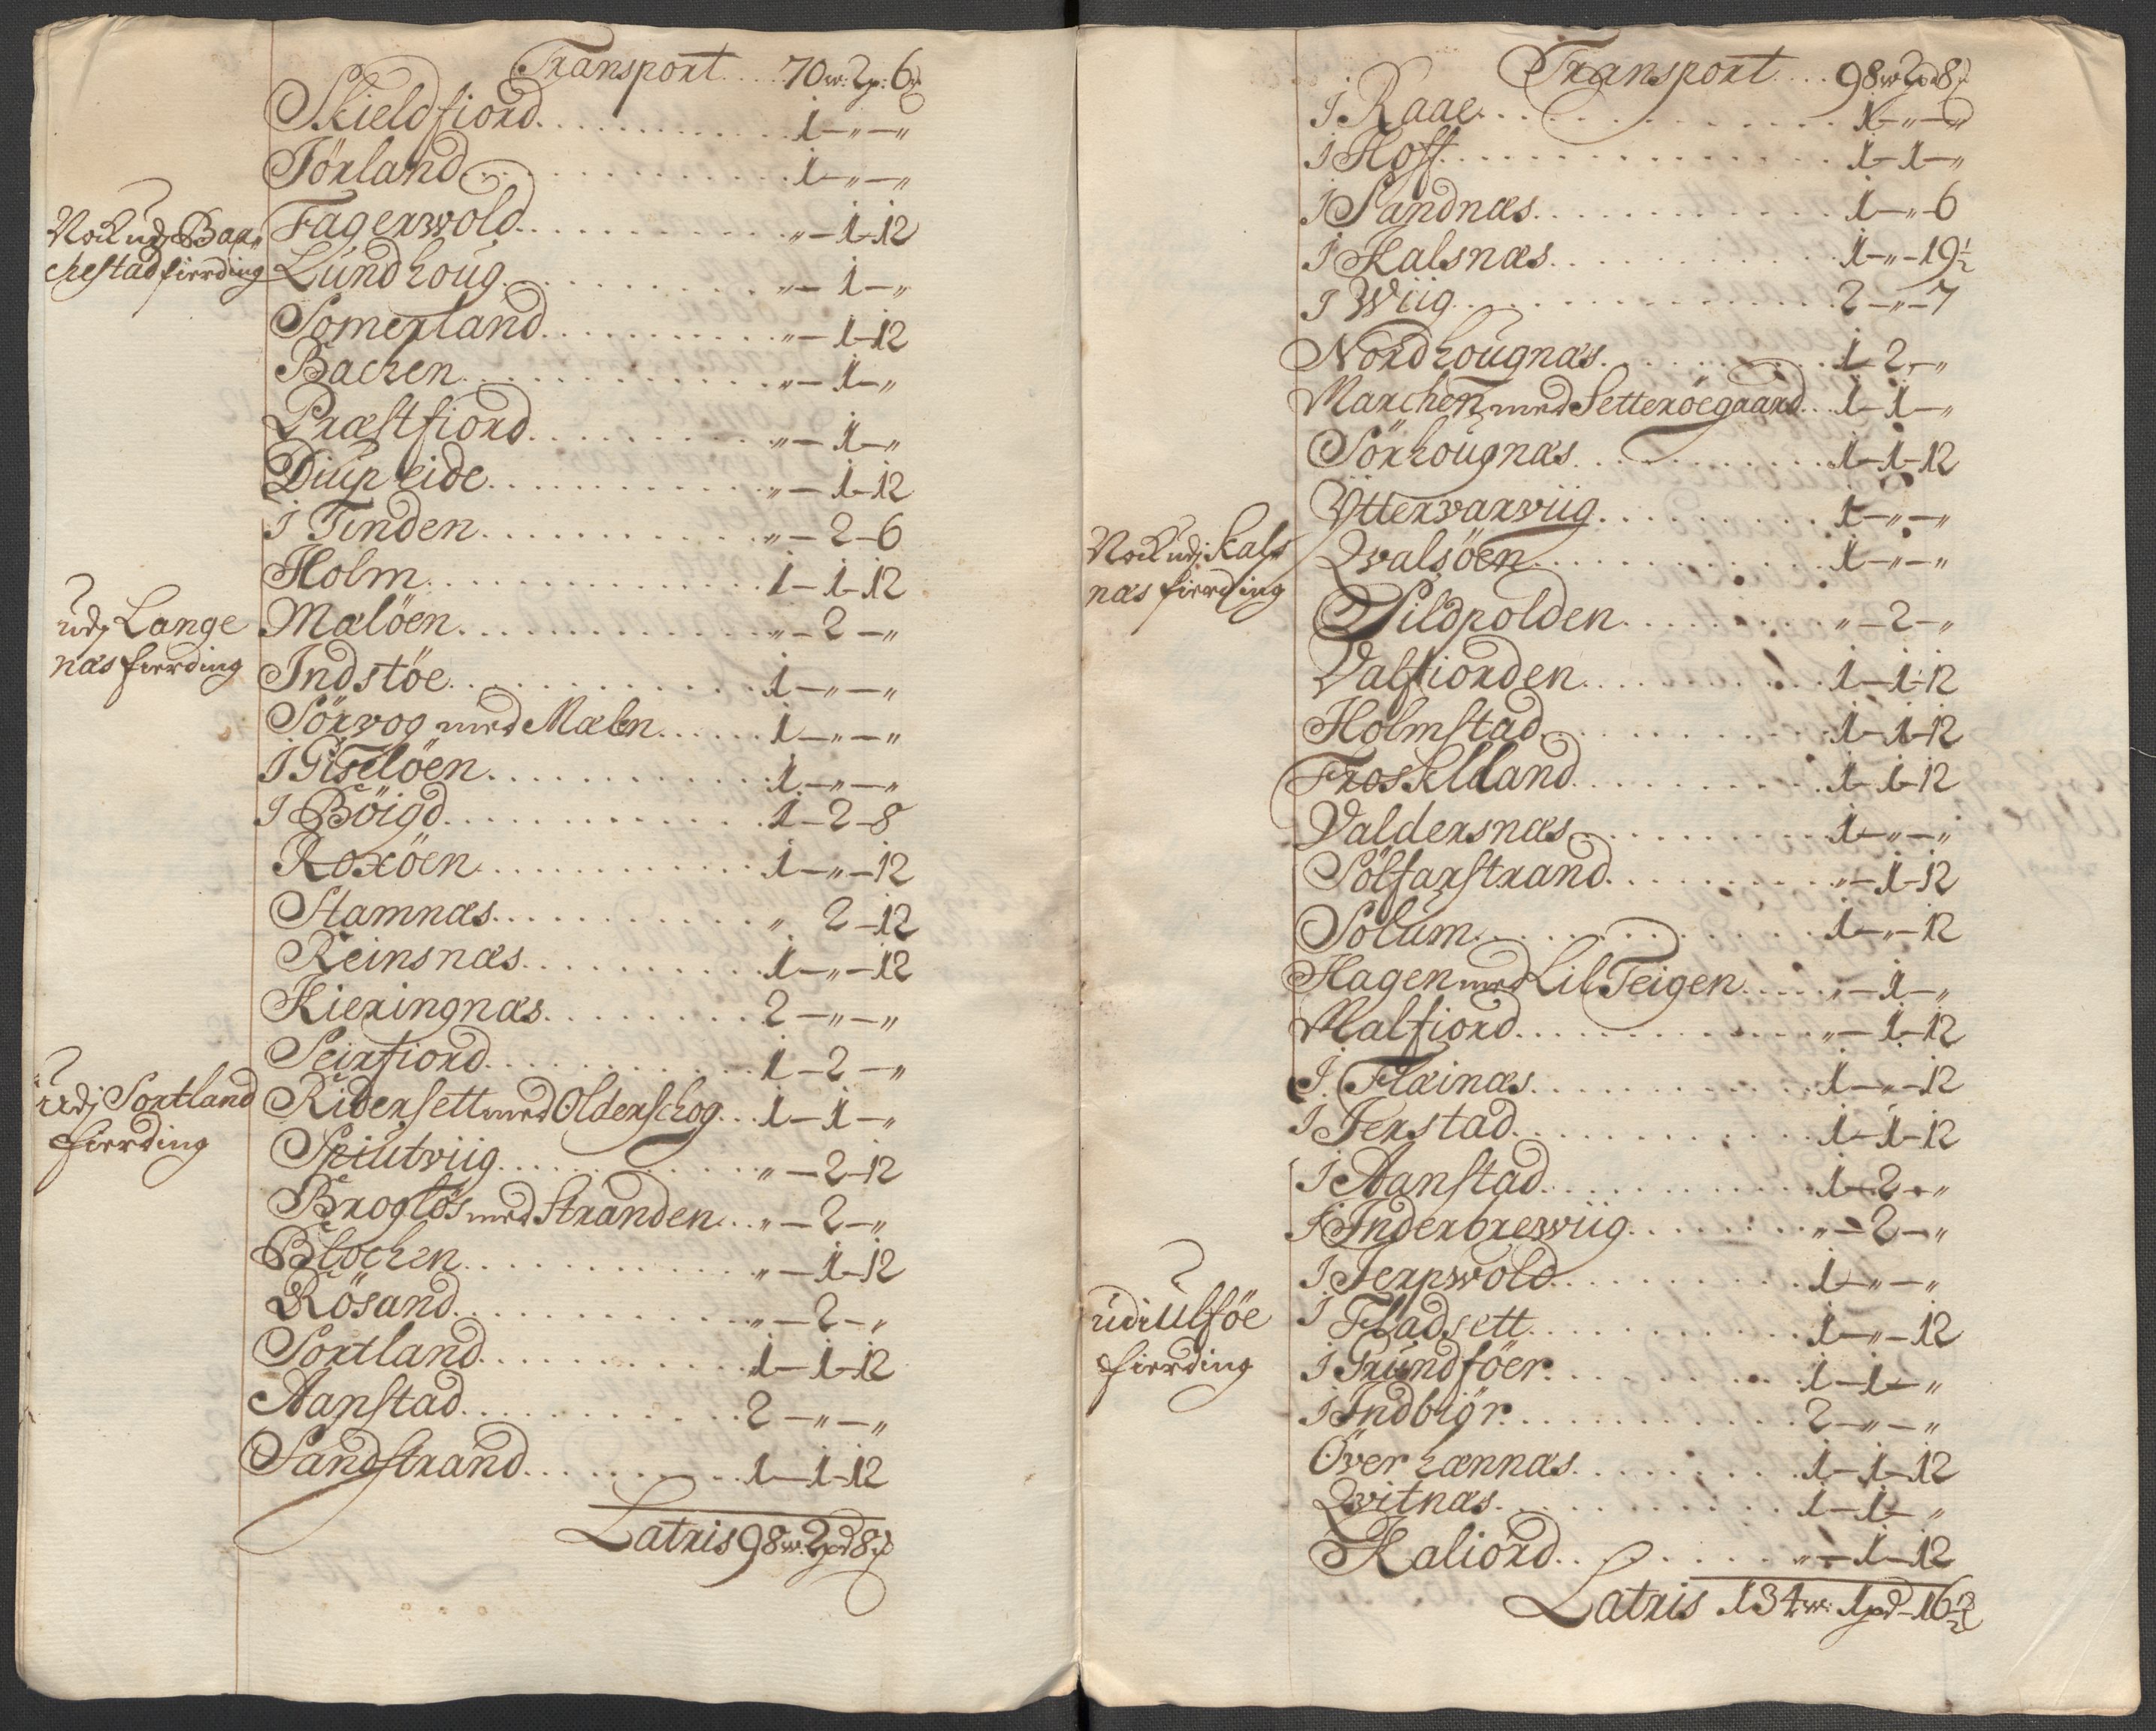 Transport . . . 70 w: 2 p: 6 
Skieldfiord . . . 1 - " - "
Törland . . . 1 - " - "
Nock udj Bar„
chestad fierding
Fagerwold . . . " - 1 - 12
Lundhoug . . . " - 1 - "
Somerland . . . " - 1 - 12
Bachen . . . " - 1 - "
Præstfiord . . . " - 1 - "
Diupeide . . . " - 1 - 12
J Tinden . . . " - 2 - 6
Holm . . . 1 - 1 - 12
udj Lange
næs fierding
Mælöen . . . " - 2 - "
Indstöe . . . 1 - " - "
Sörvog med Mælen . . . 1 - " - "
J Giselöen . . . 1 - " - "
J Böigd . . . 1 - 2 - 8
Roxöen . . . 1 - " - 12
Stamnæs . . . " 2 - 12
Reinsnæs . . . 1 - " - 12
Kieringnæs . . . 2 - " - "
Seirfiord . . . 1 - 2 - "
Udj Sortland
fierding
Ridersett med Olderschog . . . 1 - 1 - "
Spiutviig . . . " - 2 - 12
Broglös med Stranden . . . " - 2 - "
Blochen . . . " - 1 - 12
Rösand . . . " - 2 - "
Sortland . . . 1 - 1 - 12
Aanstad . . . 2 - " - "
Sandstrand . . . 1 - 1 - 12
Latris 98 w: 2 pd 8
Transport . . . 98 w 2 pd 8
J Raae . . . 1 - " - "
J Hoff . . . 1 - 1 - "
J Sandnæs . . . 1 - " - 6
J Kalsnæs . . . 1 - " - 19 1/2
J Wiig . . . 2 - " - 7
Nordhougnæs . . . 1 - 2 - "
Marchen med Setteröegaard . . . 1 - 1 - "
Sörhougnæs . . . 1 - 1 - 12
Yttervarviig . . . 1 - " - "
Nock udj Kals
næs fierding
Qvalsöen . . . 1 - " - "
Sildpolden . . . " - 2 - "
Valfiorden . . . 1 - 1 - 12
Holmstad . . . 1 - 1 - 12
Froskelland . . . 1 - 1 - 12
Valdersnæs . . . 1 - " - "
Sölfarstrand . . . " - 1 - 12
Solum . . . 1 - " - 12
Hagen med Lil Teigen . . . " - 1 - "
Malfiord . . . " - 1 - 12
J Flæinæs . . . 1 - " - 12
J Jerstad . . . 1 - 1 - 12
J Aanstad . . . 1 - 2 - "
J Inderbrewiig . . . " - 2 - "
J Jerpwold . . . 1 - " - "
udi Ulföe
fierding
J Fladsett . . . 1 - " - 12
J Grundföer . . . 1 - 1 - "
J Indbiör . . . 2 - " - "
Över hænnæs . . . 1 - 1 - 12
Qvitnæs . . . 1 - 1 - "
Kaliord . . . " - 1 - 12
Latris 134 w: 1 pd - 16 1/2